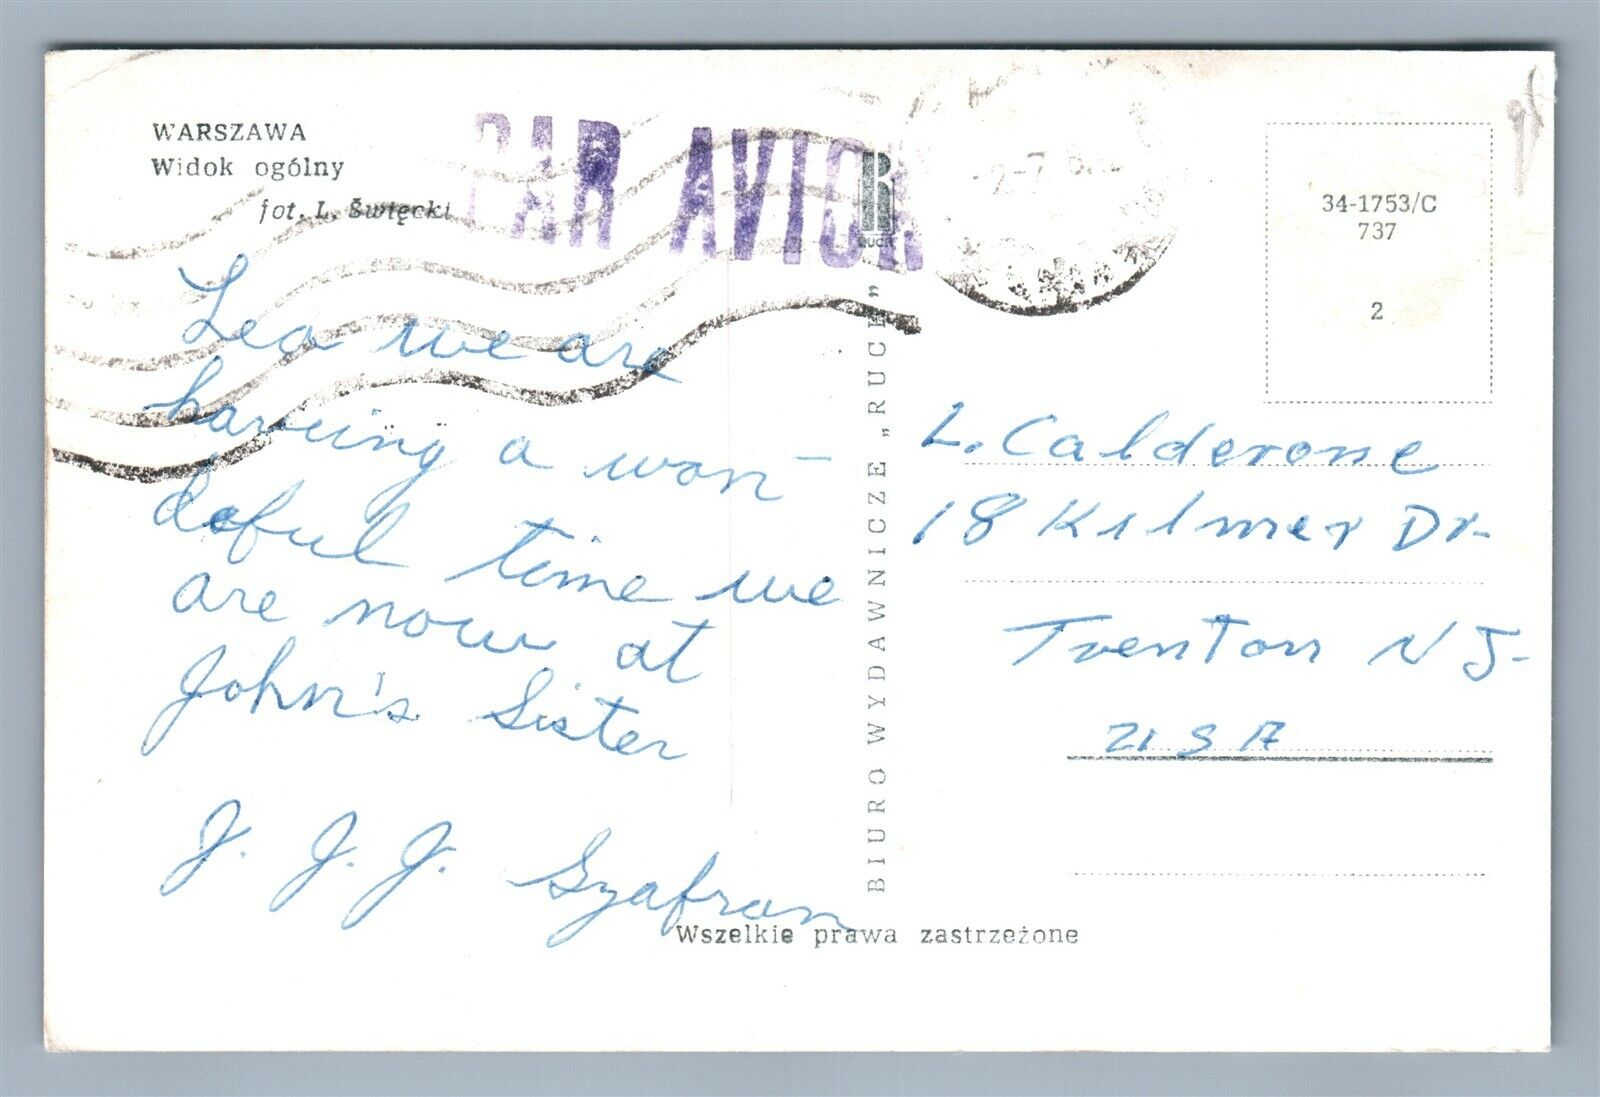 WARSZAWA
Widok ogólny
fot. L. Święcki
PAR AVION
RUCH
34-1753/C
737
2
Lea we are
having a won-
deful time we
are now at
John's Sister
J. J. J. Szafran
BIURO WYDAWNICZE „RUCH”
L. Calderone
18 Kilmer Dr.
Trenton N J.
USA
Wszelkie prawa zastrzeżone